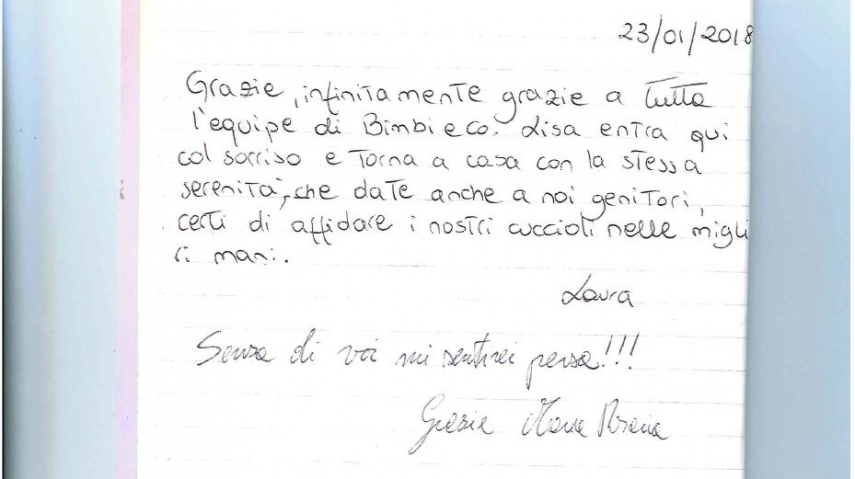 23/01/2018
Grazie, infinitamente grazie a tutta
l'equipe di Bimbi eco. Lisa entra qui
col sorriso e torna a casa con la stessa
serenità, che date anche a noi genitori,
certi di affidare i nostri cuccioli nelle migli
ri mani.
Laura
Senza di voi mi sentirei persa!!!
Grazie Maria